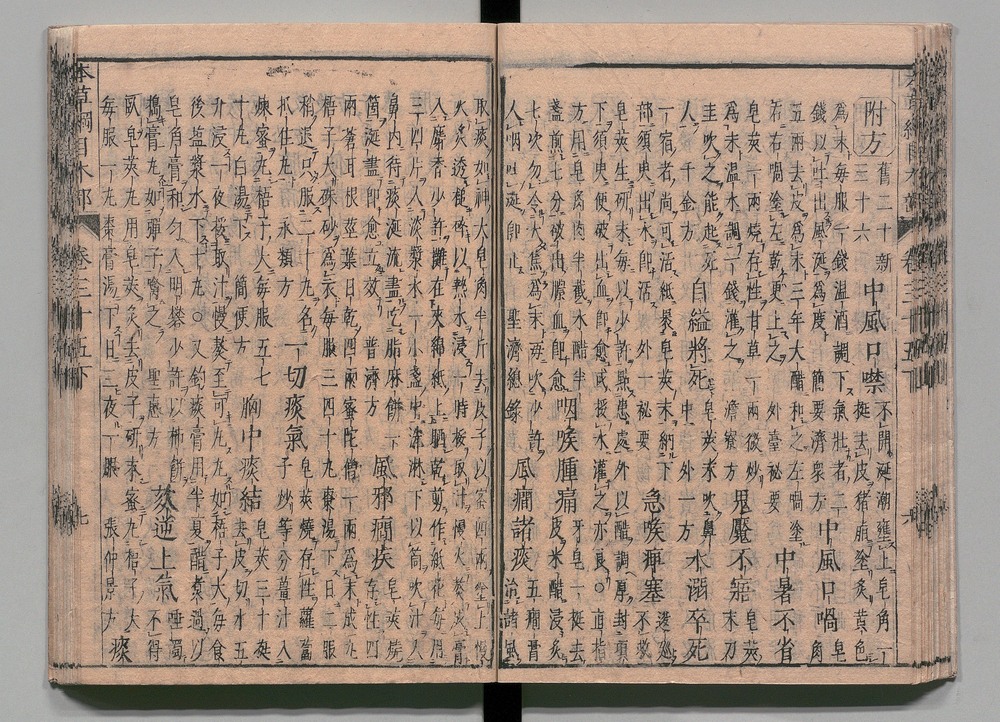 附方 舊二十新三十六 中風口噤 不開涎潮壅上皂角一挺去皮猪脂塗炙黄色
為末每服一錢温酒調下氣壯者二錢以吐出風涎為度簡要濟衆方 中風口喎 皂角
五兩去皮為末三年大醋和之左喎塗右右喎塗左乾更上之外臺秘要 中暑不省
皂莢一兩燒存性甘草一兩微炒為末温水調一錢灌之澹寮方 鬼魘不寤 皂莢末刀
圭吹之能起死人千金方 自縊將死 皂莢末吹鼻中外一方 水溺卒死
一宿者尚可活紙裹皂莢末納下部須臾出水即活外一秘要 急喉痺塞 逡巡不救
皂莢生研末每以少許點患處外以醋調厚封項下須臾便破出血即愈或挼水灌之亦良○直指
方用皂角肉半截米醋半盞煎七分破出血即愈 咽喉腫痛 牙皂一挺去皮米醋浸炙
七次勿令太焦為末每吹少許入咽吐涎即止聖濟總錄 風癇諸痰 五癇膏治諸風
取痰如神大皂角半斤去皮子以蜜四兩塗上慢
火炙透搥碎以熱水浸一時挼取汁慢火熬成膏
入麝香少許攤在夾綿紙上晒乾剪作紙花每用
三四片入淡漿水一小盞中洗淋下以筒吹汁入
鼻内待痰涎流盡吃脂麻餅一箇涎盡即愈立效普濟方 風邪癇疾 皂莢燒存性四
兩蒼耳根莖葉日乾四兩蜜陀僧一兩為末成丸
梧子大朱砂為衣每服三四十丸棗湯下日二服
稍退只服二十丸名抵住丸永類方 一切痰氣 皂莢燒存性蘿蔔子炒等分薑汁入
煉蜜丸梧子大每服五七十丸白湯下簡便方 胸中痰結 皂莢三十挺去皮切水五
升浸一夜挼取汁慢熬至可丸丸如梧子大每食
後鹽漿水下十丸○又釣痰膏用半夏醋煮過以
皂角膏和勻入明礬少許以柿餅搗膏丸如彈子噙之聖惠方 欬逆上氣 唾濁不得
臥皂莢丸用皂莢炙去皮子研末蜜丸梧子大
每服一丸棗膏湯下日三夜一服張仲景方 痰